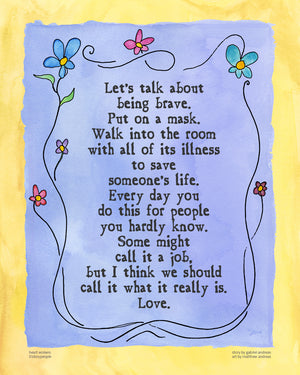 Let's talk about
being brave.
Put on a mask.
Walk into the room
with all of its illness
to save
someone's life.
Every day you
do this for people
you hardly know.
Some might
call it a job,
but I think we should
call it what it really is.
Love.
story by gabriel andreas
art by matthew andreas